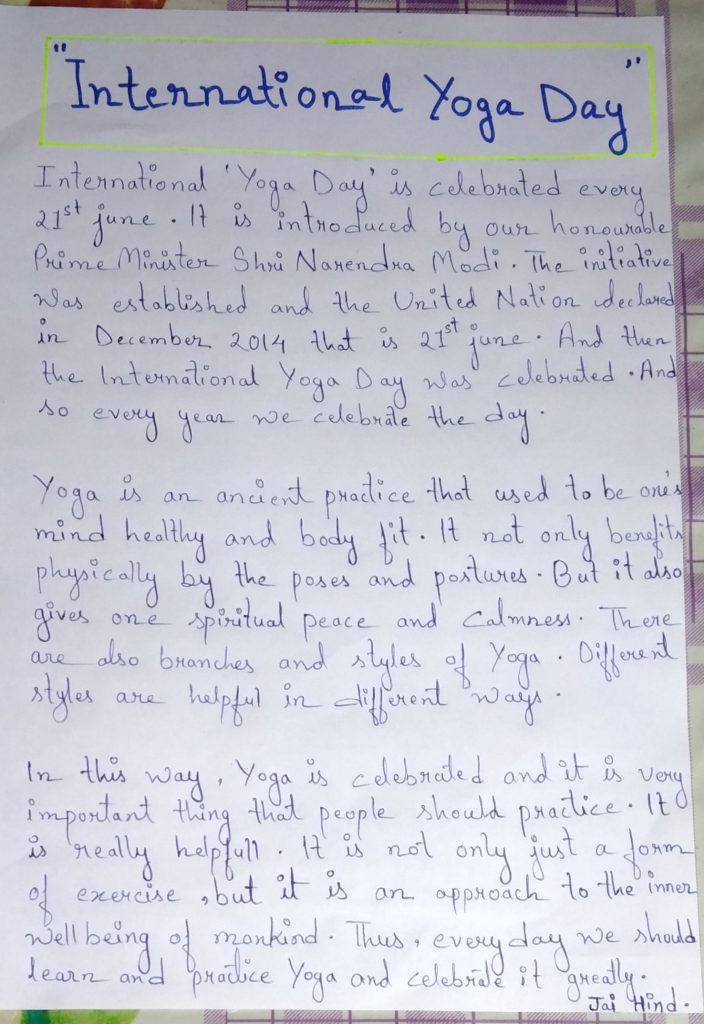 "International Yoga Day"
International 'Yoga Day' is celebrated every
21st june. It is introduced by our honourable
Prime Minister Shri Narendra Modi. The initiative
was established and the United Nation declared
in December 2014 that is 21st june. And then
the International Yoga Day was celebrated. And
so every year we celebrate the day.
Yoga is an ancient practice that used to be one's
mind healthy and body fit. It not only benefits
physically by the poses and postures. But it also
gives one spiritual peace and calmness. There
are also branches and styles of Yoga. Different
styles are helpful in different ways.
In this way, Yoga is celebrated and it is very
important thing that people should practice. It
is really helpfull. It is not only just a form
of exercise, but it is an approach to the inner
well being of mankind. Thus, every day we should
learn and practice Yoga and celebrate it greatly.
Jai Hind.